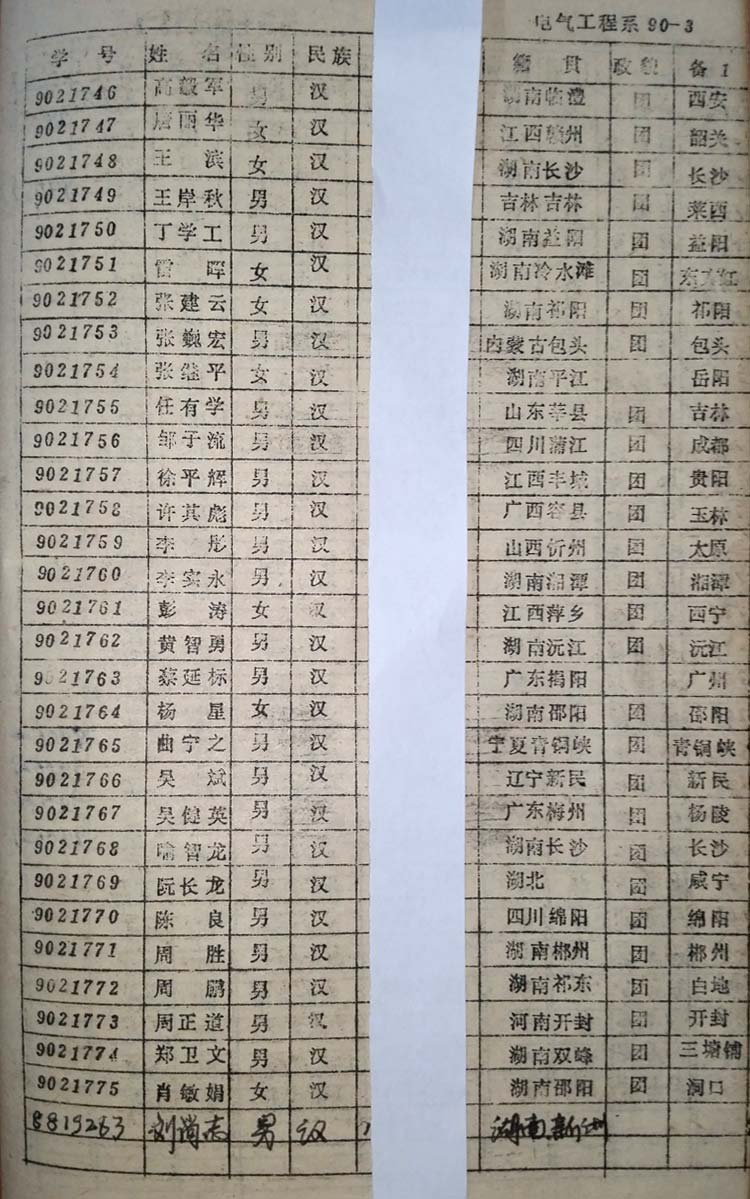 电气工程系90-3
学号 姓名 性别 民族 籍贯 政貌 备1
9021746 高毅军 男 汉 湖南临澧 团 西安
9021747 唐丽华 女 汉 江西赣州 团 韶关
9021748 王滨 女 汉 湖南长沙 团 长沙
9021749 王岸秋 男 汉 吉林吉林 团 莱西
9021750 丁学工 男 汉 湖南益阳 团 益阳
9021751 雷晖 女 汉 湖南冷水滩 团
9021752 张建云 女 汉 湖南祁阳 团 祁阳
9021753 张巍宏 男 汉 内蒙古包头 团 包头
9021754 张继平 女 汉 湖南平江 岳阳
9021755 任有学 男 汉 山东莘县 团 吉林
9021756 邹子流 男 汉 四川蒲江 团 成都
9021757 徐平辉 男 汉 江西丰城 团 贵阳
9021758 许其彪 男 汉 广西容县 团 玉林
9021759 李彤 男 汉 山西忻州 团 太原
9021760 李实永 男 汉 湖南湘潭 团 湘潭
9021761 彭涛 女 汉 江西萍乡 团 西宁
9021762 黄智勇 男 汉 湖南沅江 团 沅江
9021763 蔡延标 男 汉 广东揭阳 广州
9021764 杨星 女 汉 湖南邵阳 团 邵阳
9021765 曲宁之 男 汉 宁夏青铜峡 团 青铜峡
9021766 吴斌 男 汉 辽宁新民 团 新民
9021767 吴健英 男 汉 广东梅州 团 杨陵
9021768 喻智龙 男 汉 湖南长沙 团 长沙
9021769 阮长龙 男 汉 湖北 团 咸宁
9021770 陈良 男 汉 四川绵阳 团 绵阳
9021771 周胜 男 汉 湖南郴州 团 郴州
9021772 周鹏 男 汉 湖南祁东 团 白地
9021773 周正道 男 汉 河南开封 团 开封
9021774 郑卫文 男 汉 湖南双峰 团 三塘铺
9021775 肖敏娟 女 汉 湖南邵阳 团 洞口
8819263 刘尚志 男 汉 湖南